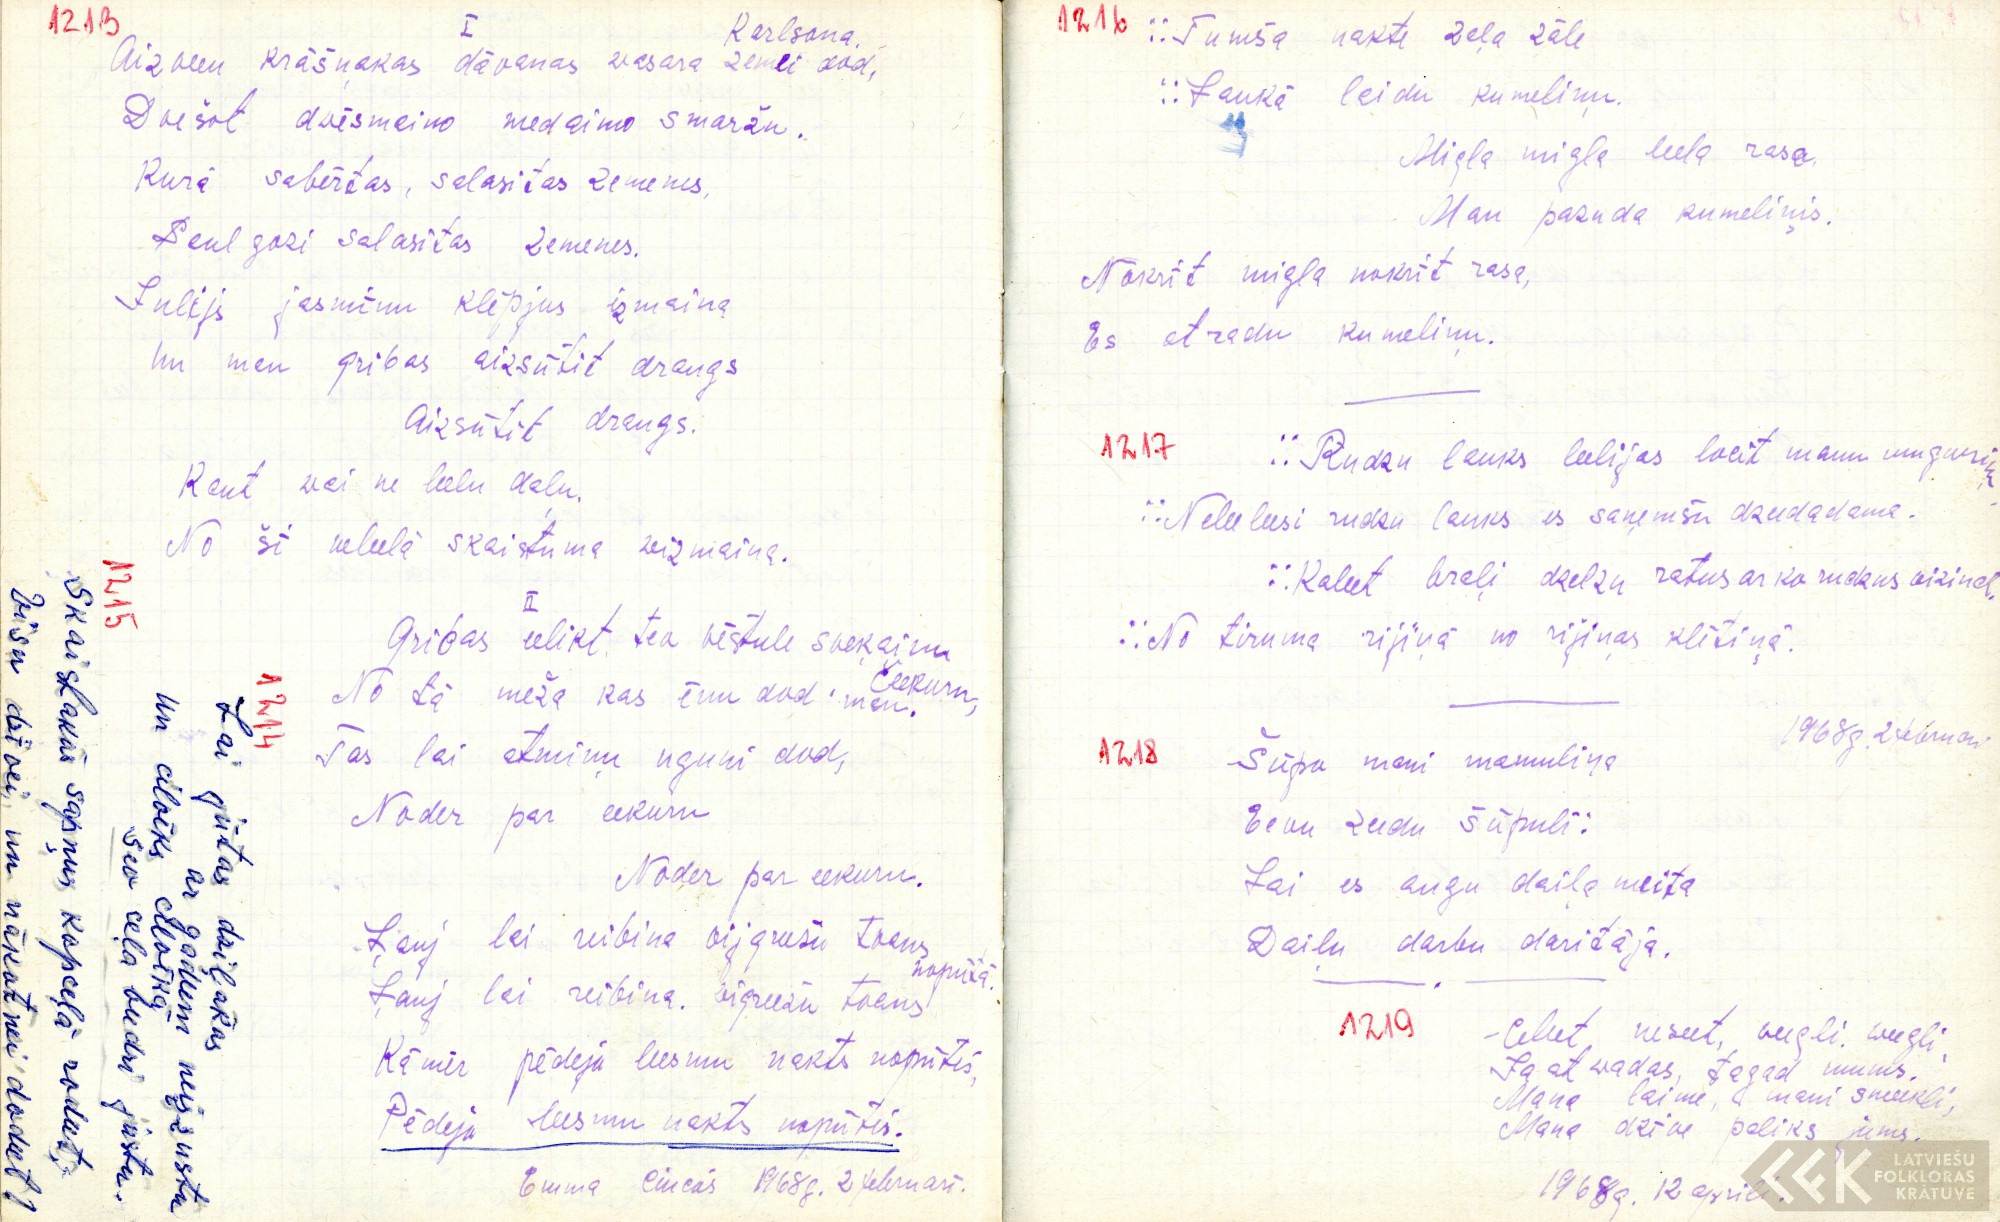 1213
I
Karlsona.
Aizveen krāšņakas dāvanas vasara zemei dod,
Dvešot dvēsmaino medaino smaržu.
Kurā sabērtas, salasitas zemenes,
Saulgozi salasitas zemenes.
Julijs jasmīnu klēpjus izmaina
Un man gribas aizsūtit draugs
Aizsūtit draugs.
Kaut vai ne leelu daļu.
No šī leelā skaistuma vizmaina.
II
Gribas eelikt tev vēstule sveķainu
čeekuru,
No tā meža kas ēnu dod man.
Tas lai atmiņu uguni dod,
Noder par eekuru
Noder par eekuru.
Ļauj lai reibina vijgreešu tvans
noputā.
Ļauj lai reibina. vigreežu tvans
Kāmēr pēdeja leesmu nakts nopūtis,
Pēdeja leesmu nakts nopūtis.
Emma Cincās 1968g. 2 februari.
1214
Lai jūtas daiļakas
ar gadem neizzustu
Un cilvēks cilvēkā
sev ceļa beedri justu.
1215
Skaistakās sapņus kopceļā rodut,
Visu dzīvei, un nākotnei dodat!
1216
:: Tumša nakte zaļa zāle
:: Laukā laidu kumeliņu.
Migla migla leela rasa,
Man pazuda kumeliņis.
Nokrīt migla nokrīt rasa,
Es atradu kumeliņu.
1217
:: Rudzu lauks leelijas locit manu muguriņ
:: Neleeleesi rudzu lauks es saņemšu dzeedadama.
:: Kaleet braļi dzelzu ratus ar ko rudzus vizinat.
:: No tiruma rijiņā no rijiņas klētiņā.
1968g. 2 februari
1218
Šūpo mani mamuliņa
Eevu zeedu šūpulī:
Lai es augu daiļa meita
Daiļu darbu daritāja.
1219
Celeet neseet, veegli, veegli,
Ja at vadas, tagad mums.
Mana laime, mani smeekli,
Mana dzīve paliks jums.
1968g. 12 aprili.
LATVIEŠU
FOLKLORAS
KRĀTUVE